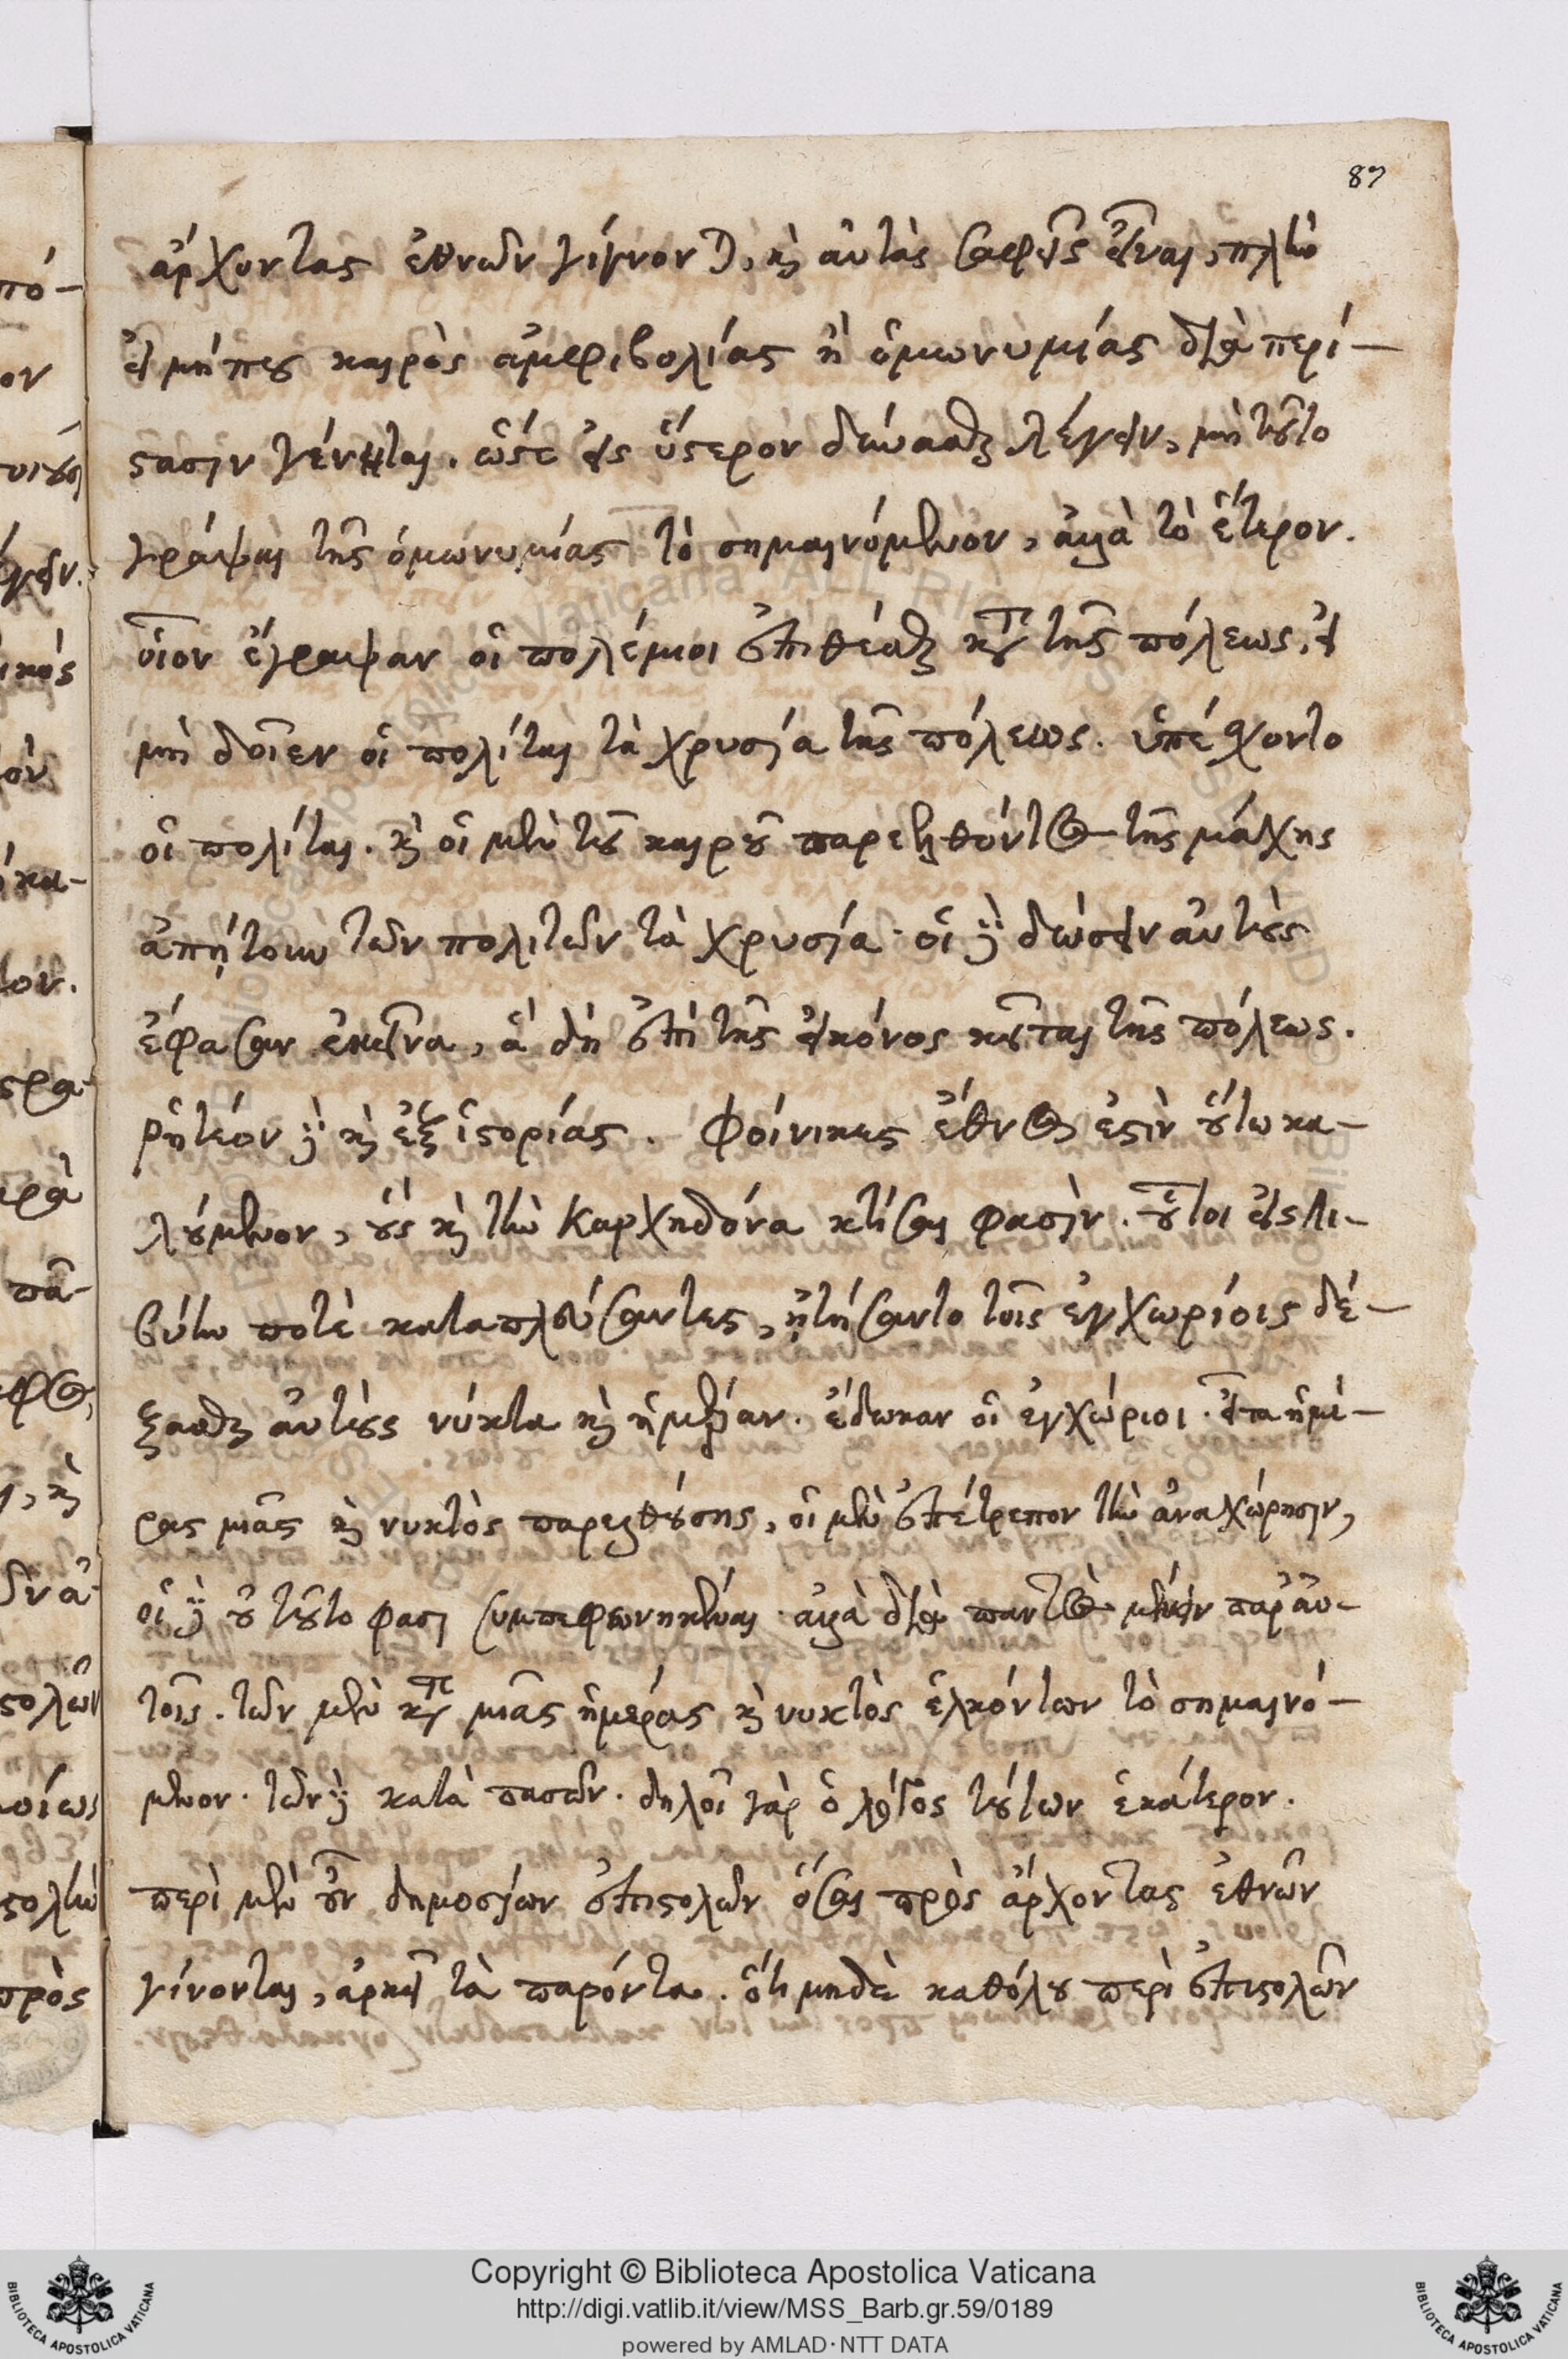 87
ἄρχοντας ἐθνῶν γίγνονται, καὶ αὐτὰς σαφεῖς εἶναι, πλὴν
εἰ μήπου καιρὸς ἀμφιβολίας ἢ ὁμωνυμίας διὰ περί-
στασιν γένηται. ὥστε εἰς ὕστερον δύνασθαι λέγειν, μὴ τοῦτο
γράψαι τῆς ὁμωνυμίας τὸ σημαινόμενον, ἀλλὰ τὸ ἕτερον.
οἷον ἔγραψαν οἱ πολέμιοι ἐπιθέσθαι κατὰ τῆς πόλεως, εἰ
μὴ δοῖεν οἱ πολίται τὰ χρυσία τῆς πόλεως. ὑπέσχοντο
οἱ πολίται. καὶ οἱ μὲν τοῦ καιροῦ παρελθόντος τῆς μάχης
ἀπῄτουν τῶν πολιτῶν τὰ χρυσία. οἱ δὲ δώσειν αὐτοὺς
ἔφασαν ἐκεῖνα, ἃ δὴ ἐπὶ τῆς εἰκόνος κεῖται τῆς πόλεως.
ῥητέον δὲ καὶ ἐξ ἱστορίας. Φοίνικες ἔθνος ἐστὶν οὕτω κα-
λούμενον, οὓς καὶ τὴν Καρχηδόνα κτίσαι φασὶν. οὗτοι εἰς Λι-
βύην ποτὲ καταπλεύσαντες, ᾐτήσαντο τοῖς ἐγχωρίοις δέ-
ξασθαι αὐτοὺς νύκτα καὶ ἡμέραν. ἔδωκαν οἱ ἐγχώριοι. εἶτα ἡμέ-
ρας μιᾶς καὶ νυκτὸς παρελθούσης, οἱ μὲν ἐπέτρεπον τὴν ἀναχώρησιν,
οἱ δὲ οὐ τοῦτο φασι συμπεφωνηκέναι. ἀλλὰ διὰ παντὸς μένειν παρ' αὐ-
τοῖς. τῶν μὲν κατὰ μιᾶς ἡμέρας καὶ νυκτὸς ἑλκόντων τὸ σημαινό-
μενον. τῶν δὲ κατὰ πασῶν. δηλοῖ γὰρ ὁ λόγος τούτων ἑκάτερον.
περὶ μὲν οὖν δημοσίων ἐπιστολῶν ὅσαι πρὸς ἄρχοντας ἐθνῶν
γίνονται, ἀρκεῖ τὰ παρόντα. ὅτι μηδὲ καθόλου περὶ ἐπιστολῶν
Copyright © Biblioteca Apostolica Vaticana
http://digi.vatlib.it/view/MSS_Barb.gr.59/0189
powered by AMLAD·NTT DATA